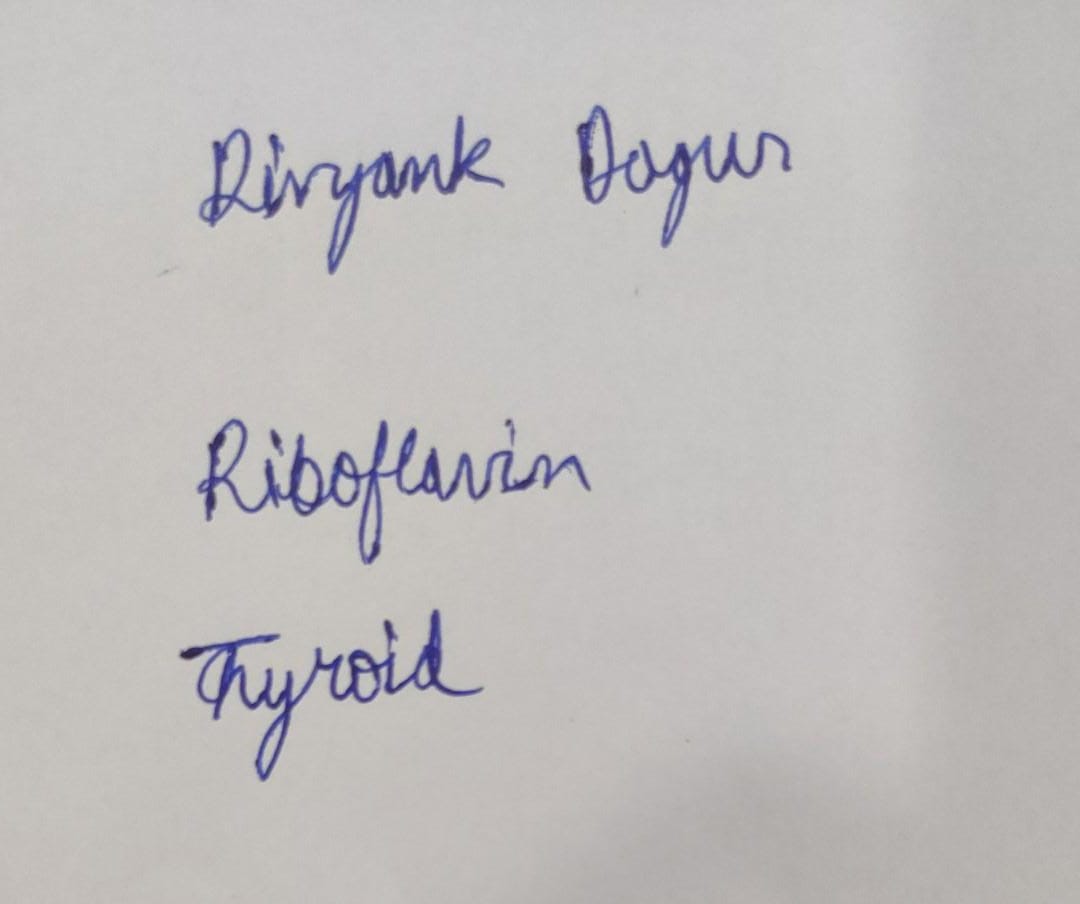 Divyank Dagur
Riboflavin
Thyroid